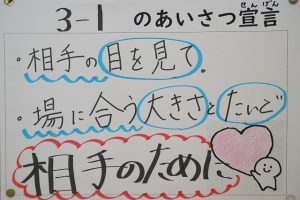 3-1 のあいさつ宣言
せん げん
・相手の目を見て。
・場に合う大きさとたいど
相手のために